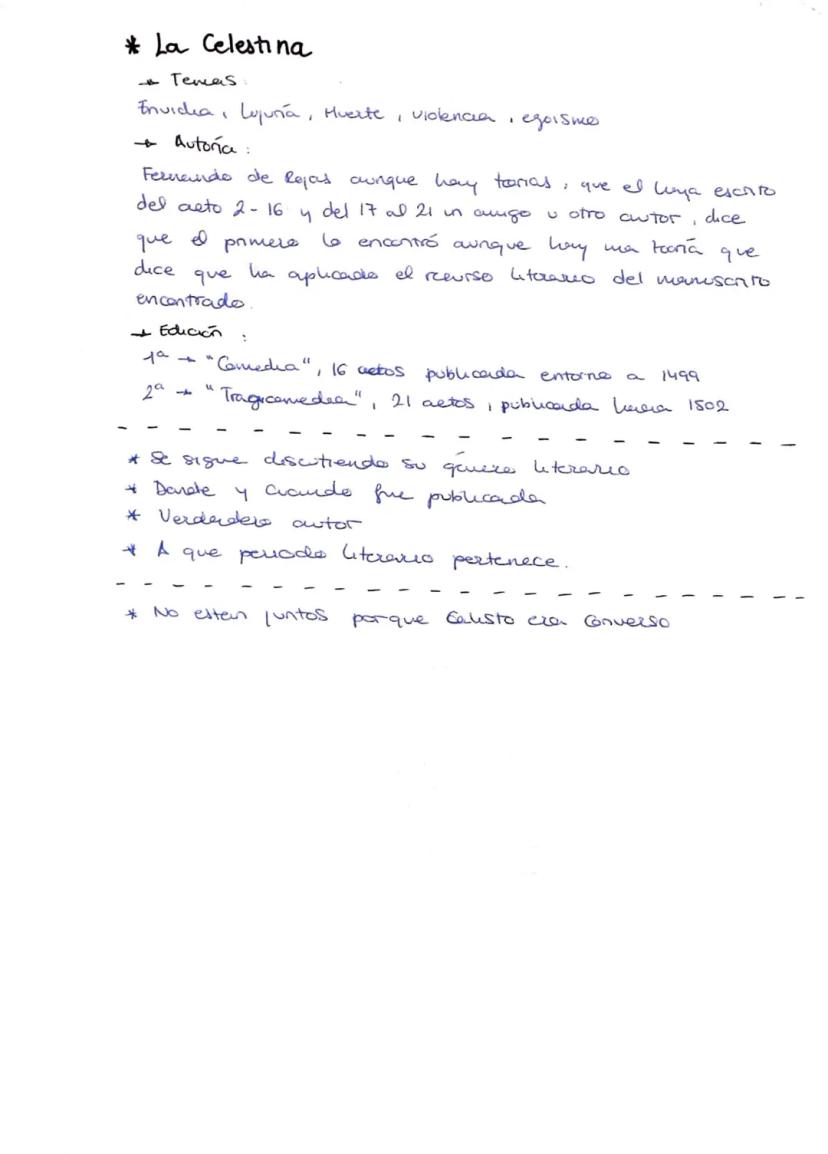 * La Celestina
→ Temas:
Envidia, lujuria, Muerte, violencia, egoismo
→ Autoría:
Fernando de Rojas aunque hay teorías, que el haya escrito
del acto 2-16 y del 17 al 21 un amigo u otro autor, dice
que el primero lo encontró aunque hay una teoría que
dice que ha aplicado el recurso literario del manuscrito
encontrado.
→ Edición:
1ª → "Comedia", 16 actos publicada entorno a 1499
2ª → "Tragicomedia", 21 actos, publicada hacia 1502
* Se sigue discutiendo su género literario
* Donde y cuando fue publicada
* Verdadero autor
* A que periodo literario pertenece.
* No estan juntos porque Calisto era converso